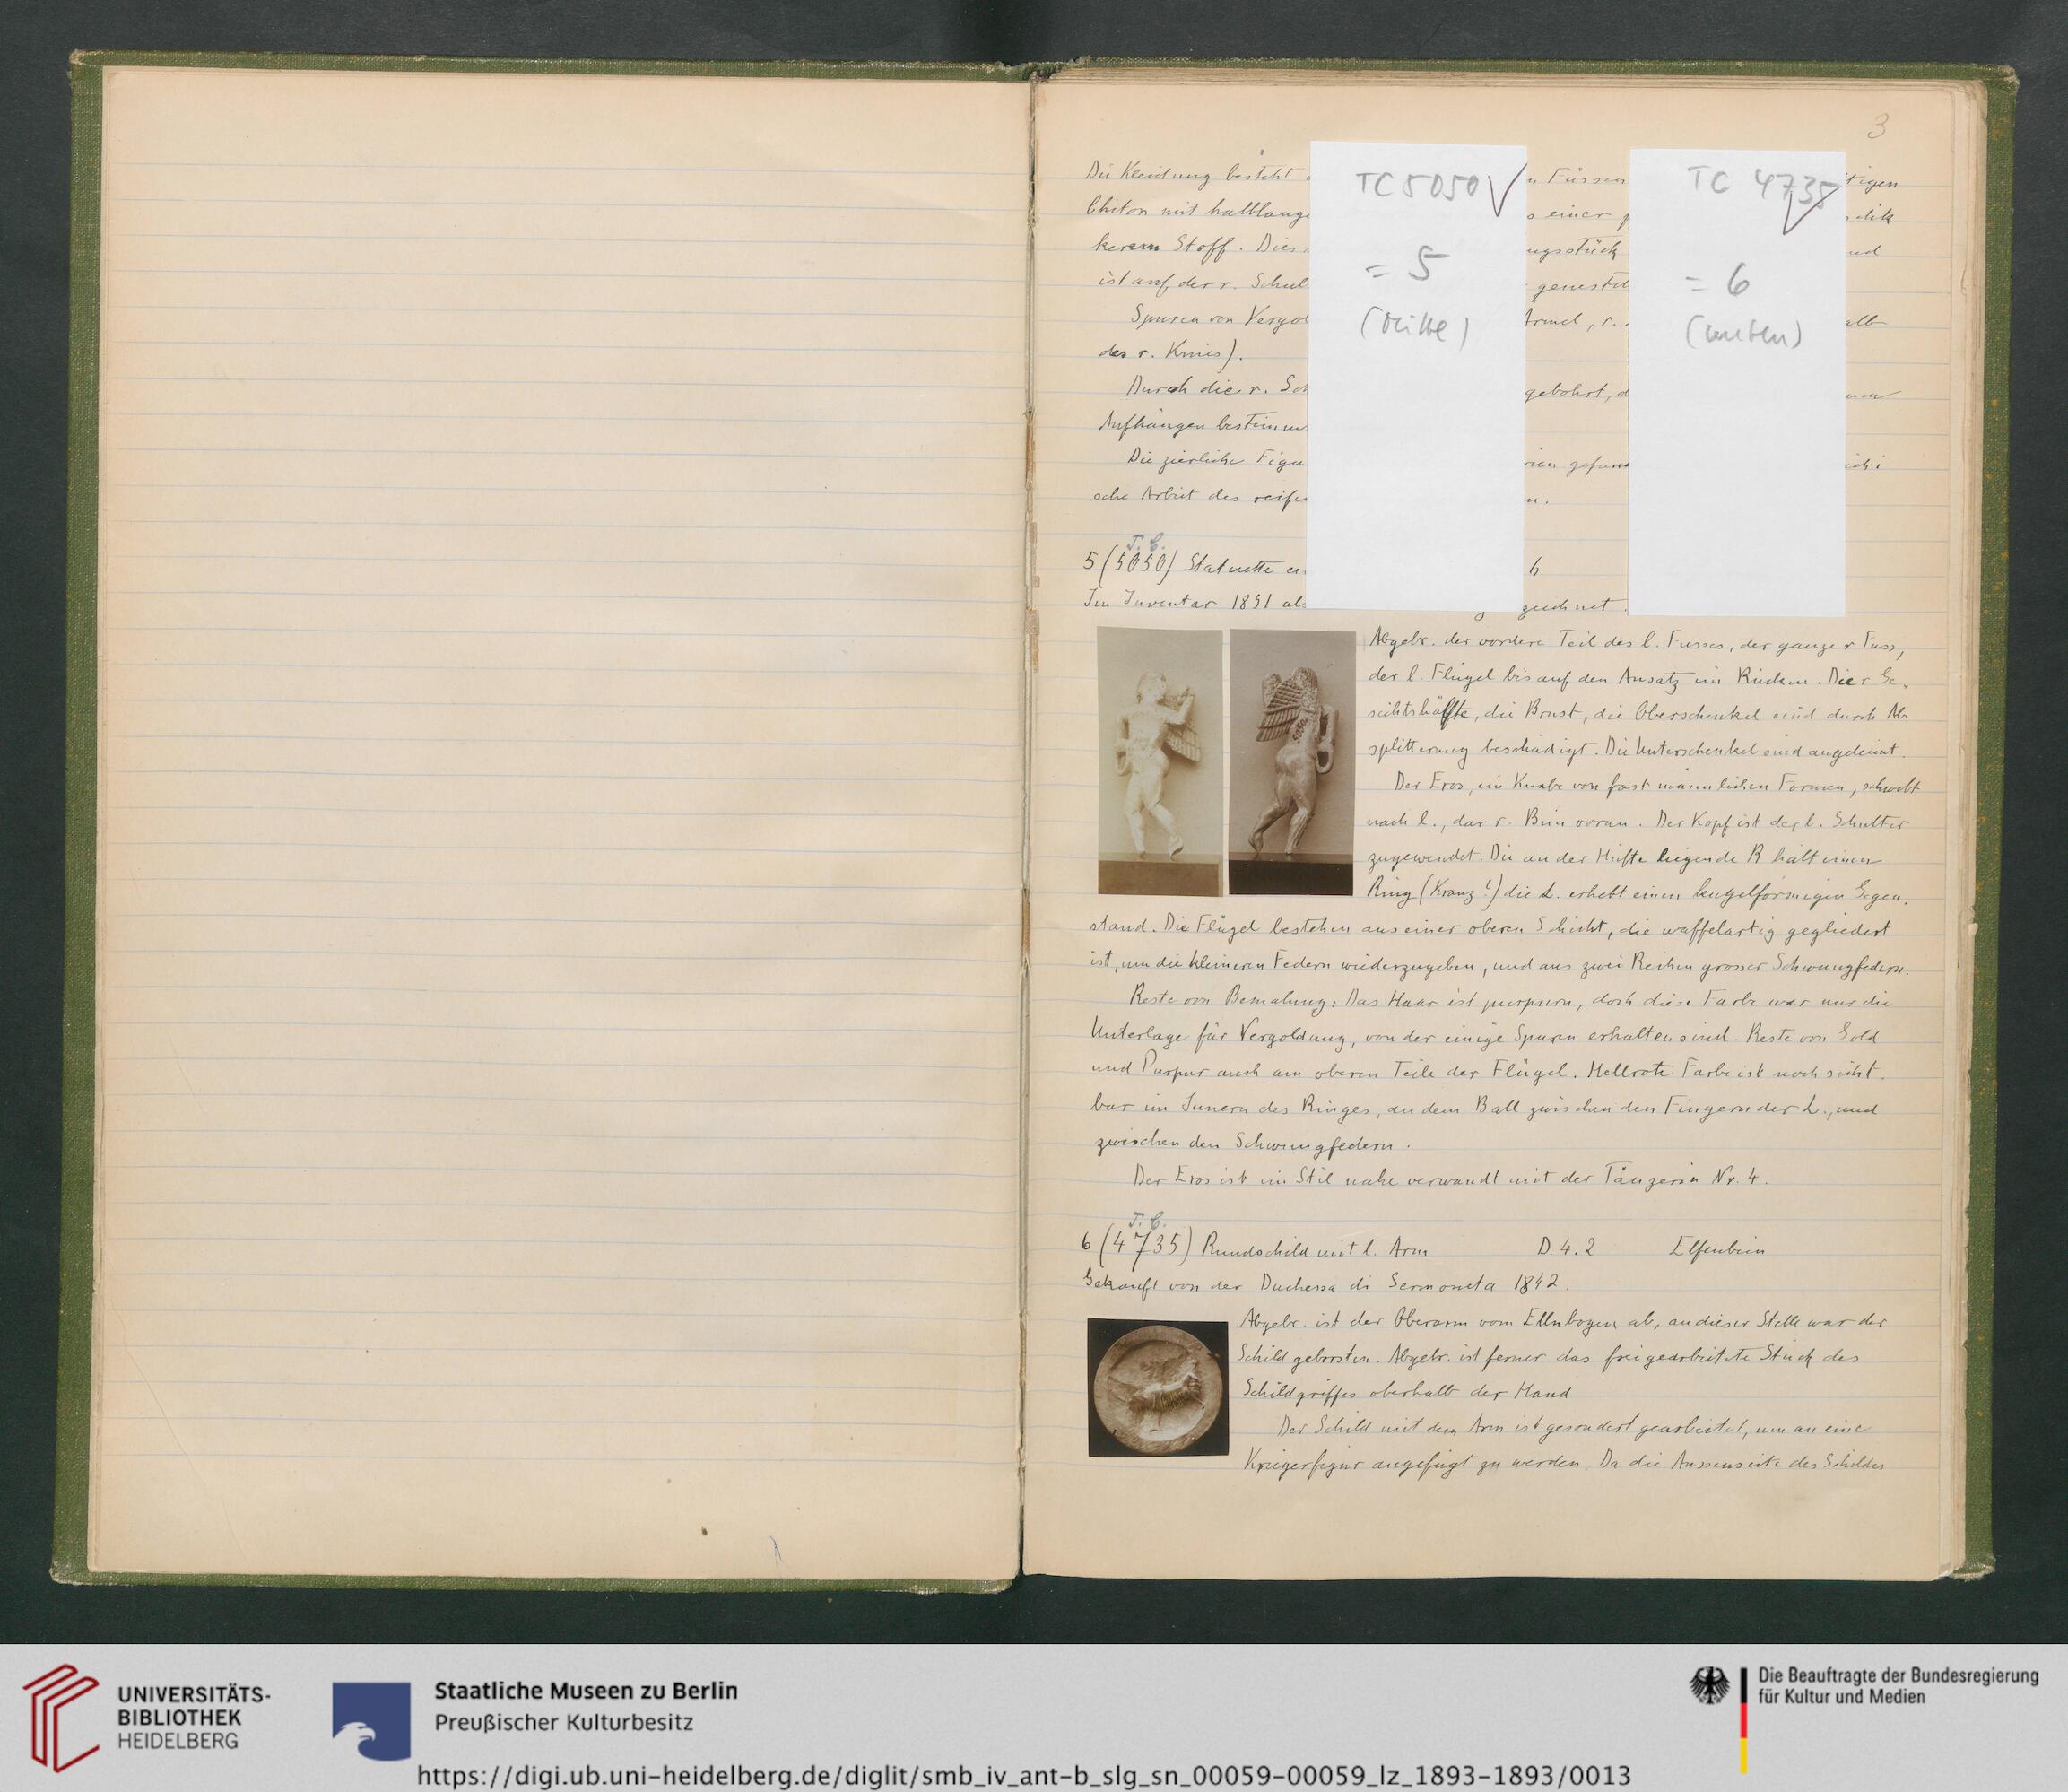 3
TC 5050 ✓
= 5
(Mitte)
TC 4735 ✓
= 6
(unten)
Die Kleidung besteht Füssen tigen
Chiton mit halblange einer dik
kerem Stoff. Dies ungsstück und
ist auf der r. Schul genestel
Spuren von Vergol Ärmel, r. alb
des r. Knies).
Durch die r. Sch gebohrt, d
Aufhängen bestimm
Die zierliche Figu gefun ichi
sche Arbeit des reife n.
T. C.
5 (5050) Statuette ei h
Im Inventar 1851 als zeichnet.
Abgebr. der vordere Teil des l. Fusses, der ganze r Fuss,
der l. Flügel bis auf den Ansatz im Rücken. Die r Ge-
sichtshälfte, die Brust, die Oberschenkel sind durch Ab
splitterung beschädigt. Die Unterschenkel sind angeleimt.
Der Eros, ein Knabe von fast männlichen Formen, schwebt
nach l., das r. Bein voran. Der Kopf ist der l. Schulter
zugewendet. Die an der Hüfte liegende R hält einen
Ring (Kranz?) die L. erhebt einen kugelförmigen Gegen-
stand. Die Flügel bestehen aus einer oberen Schicht, die waffelartig gegliedert
ist, um die kleineren Federn wiederzugeben, und aus zwei Reihen grosser Schwungfedern.
Reste von Bemalung: Das Haar ist purpurn, doch diese Farbe war nur die
Unterlage für Vergoldung, von der einige Spuren erhalten sind. Reste von Gold
und Purpur auch am oberen Teile der Flügel. Hellrote Farbe ist noch sicht-
bar im Innern des Ringes, an dem Ball zwischen den Fingern der L., und
zwischen den Schwungfedern.
Der Eros ist im Stil nahe verwandt mit der Tänzerin Nr. 4.
T. C.
6 (4735) Rundschild mit l. Arm D. 4.2 Elfenbein
Gekauft von der Duchessa di Sermoneta 1842.
Abgebr. ist der Oberarm vom Ellnbogen ab, an dieser Stelle war der
Schild geborsten. Abgebr. ist ferner das freigearbeitete Stück des
Schildgriffes oberhalb der Hand
Der Schild mit dem Arm ist gesondert gearbeitet, um an eine
Kriegerfigur angefügt zu werden. Da die Aussenseite des Schildes
UNIVERSITÄTS-
BIBLIOTHEK
HEIDELBERG
Staatliche Museen zu Berlin
Preußischer Kulturbesitz
Die Beauftragte der Bundesregierung
für Kultur und Medien
https://digi.ub.uni-heidelberg.de/diglit/smb_iv_ant-b_slg_sn_00059-00059_lz_1893-1893/0013